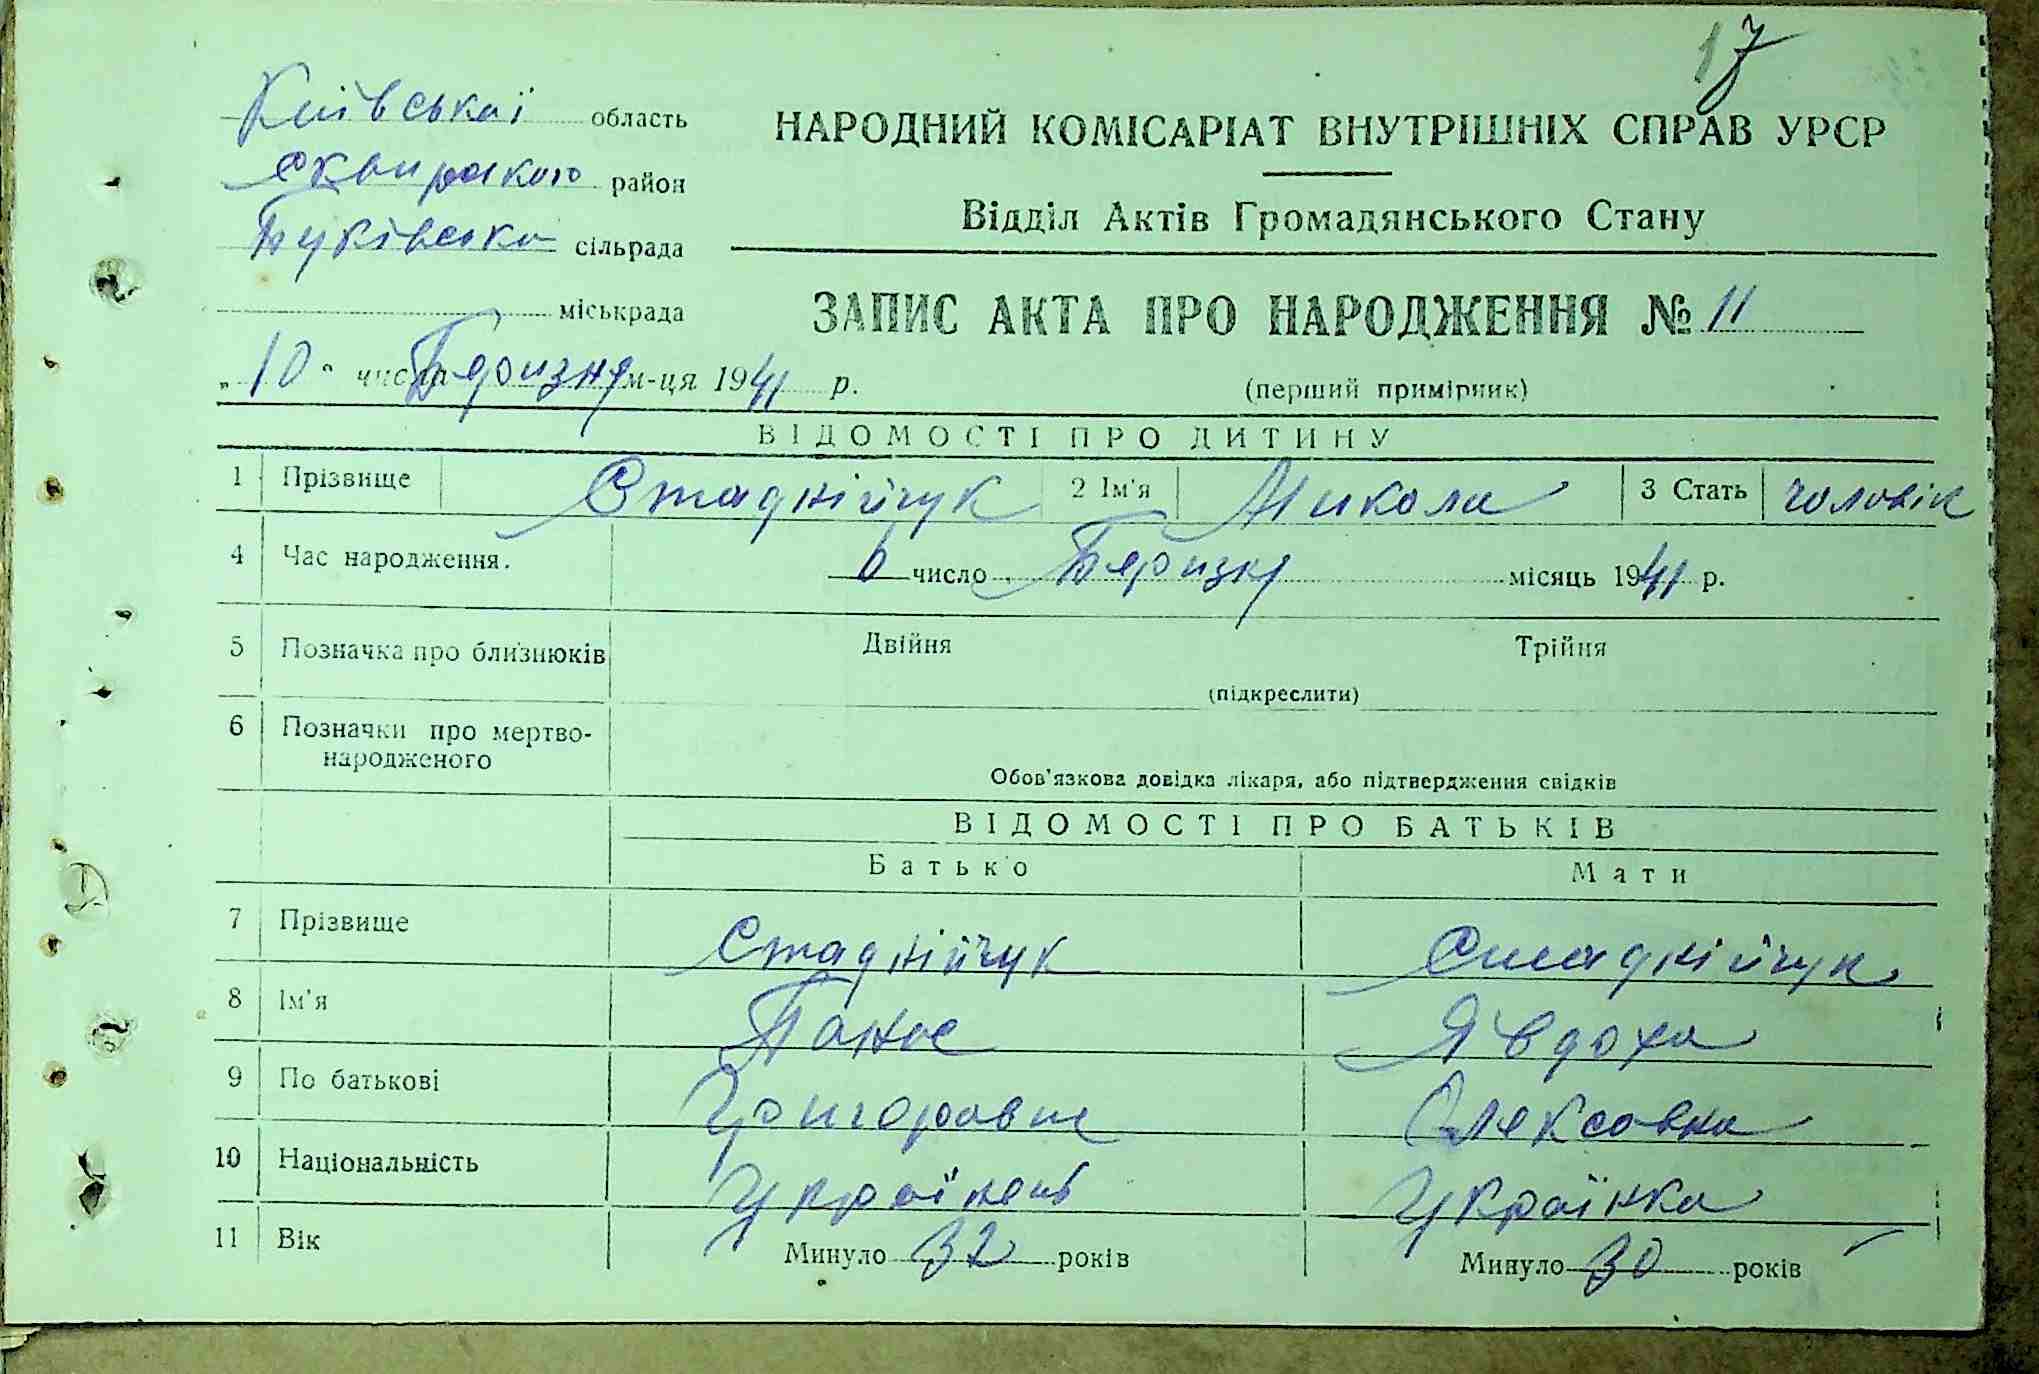 17
Київської область
Сквирського район
Буківська сільрада
міськрада
НАРОДНИЙ КОМІСАРІАТ ВНУТРІШНІХ СПРАВ УРСР
Відділ Актів Громадянського Стану
ЗАПИС АКТА ПРО НАРОДЖЕННЯ № 11
„10“ числа Березня м-ця 1941 р.
(перший примірник)
ВІДОМОСТІ ПРО ДИТИНУ
1 Прізвище Стаднійчук 2 Ім'я Микола 3 Стать чоловік
4 Час народження. 6 число Березня місяць 1941 р.
5 Позначка про близнюків Двійня Трійня
(підкреслити)
6 Позначки про мертво-
народженого
Обов'язкова довідка лікаря, або підтвердження свідків
ВІДОМОСТІ ПРО БАТЬКІВ
Батько Мати
7 Прізвище Стаднійчук Стаднійчук
8 Ім'я Панас Явдоха
9 По батькові Григоров Олексовна
10 Національність Українець Українка
11 Вік Минуло 32 років Минуло 30 років